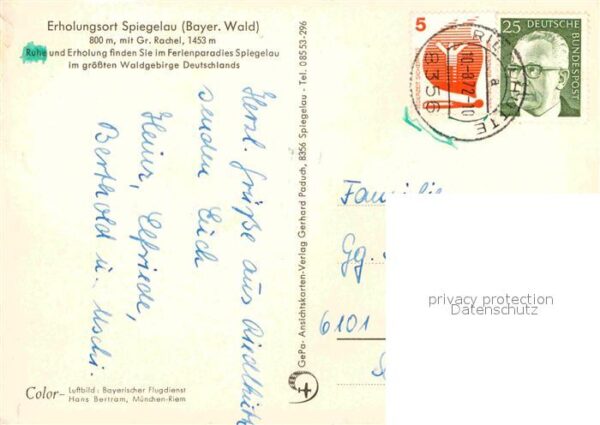 Erholungsort Spiegelau (Bayer. Wald)
800 m, mit Gr. Rachel, 1453 m
Ruhe und Erholung finden Sie im Ferienparadies Spiegelau
im größten Waldgebirge Deutschlands
Herzl. Grüße aus Riedlhütte
senden Euch
Heinr, Elfriede,
Berthold u. Uschi.
Color- Luftbild: Bayerischer Flugdienst
Hans Bertram, München-Riem
GePa- Ansichtskarten-Verlag Gerhard Paduch, 8356 Spiegelau - Tel. 08553-296
5
25 DEUTSCHE
BUNDESPOST
10.-8.72-10
a
8356
Familie
Gg.
6101
privacy protection
Datenschutz